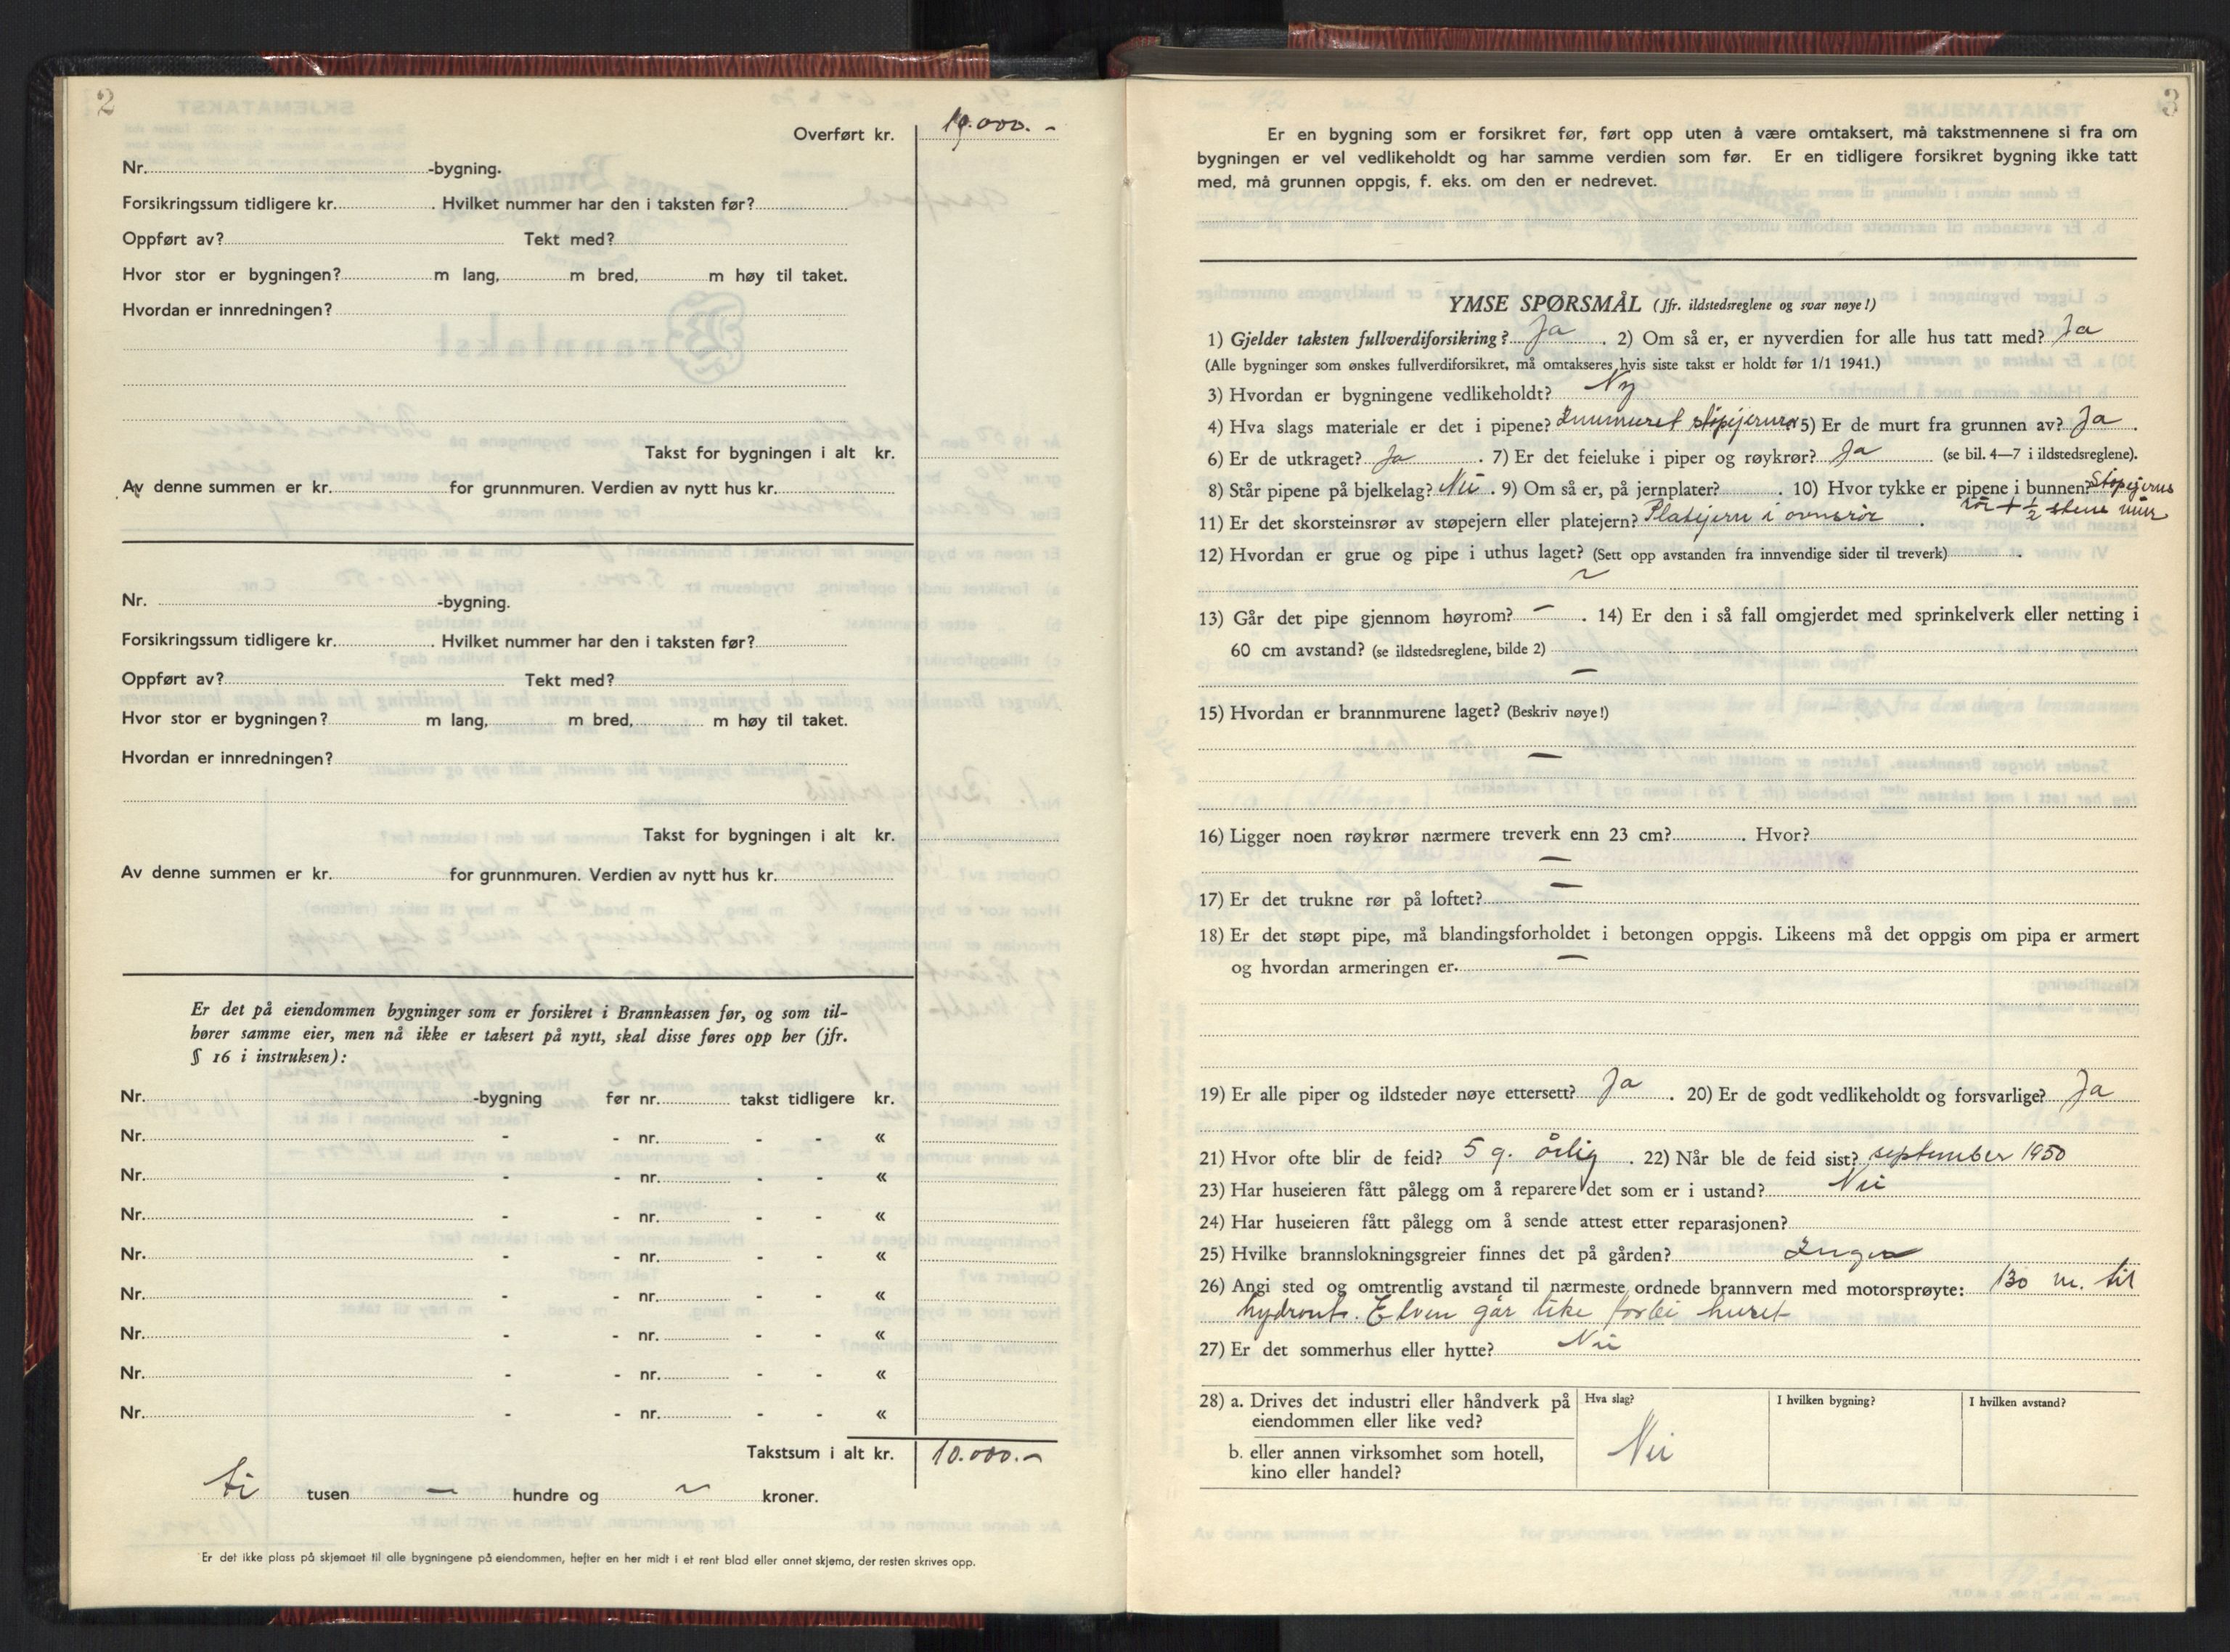 2
Overført kr. 10.000.-
Nr. -bygning.
Forsikringssum tidligere kr. . Hvilket nummer har den i taksten før?
Oppført av? Tekt med?
Hvor stor er bygningen? m lang, m bred, m høy til taket.
Hvordan er innredningen?
Takst for bygningen i alt kr.
Av denne summen er kr. for grunnmuren. Verdien av nytt hus kr.
Nr. -bygning.
Forsikringssum tidligere kr. . Hvilket nummer har den i taksten før?
Oppført av? Tekt med?
Hvor stor er bygningen? m lang, m bred, m høy til taket.
Hvordan er innredningen?
Takst for bygningen i alt kr.
Av denne summen er kr. for grunnmuren. Verdien av nytt hus kr.
Er det på eiendommen bygninger som er forsikret i Brannkassen før, og som til-
hører samme eier, men nå ikke er taksert på nytt, skal disse føres opp her (jfr.
§ 16 i instruksen):
Nr. -bygning før nr. takst tidligere kr.
Nr. - - nr. - - «
Nr. - - nr. - - «
Nr. - - nr. - - «
Nr. - - nr. - - «
Nr. - - nr. - - «
Nr. - - nr. - - «
Nr. - - nr. - - «
Nr. - - nr. - - «
Takstsum i alt kr. 10.000.-
ti tusen — hundre og ~ kroner.
Er det ikke plass på skjemaet til alle bygningene på eiendommen, hefter en her midt i et rent blad eller annet skjema, der resten skrives opp.
3
Er en bygning som er forsikret før, ført opp uten å være omtaksert, må takstmennene si fra om
bygningen er vel vedlikeholdt og har samme verdien som før. Er en tidligere forsikret bygning ikke tatt
med, må grunnen oppgis, f. eks. om den er nedrevet.
YMSE SPØRSMÅL (Jfr. ildstedsreglene og svar nøye!)
1) Gjelder taksten fullverdiforsikring? Ja . 2) Om så er, er nyverdien for alle hus tatt med? Ja
(Alle bygninger som ønskes fullverdiforsikret, må omtakseres hvis siste takst er holdt før 1/1 1941.)
3) Hvordan er bygningene vedlikeholdt? Ny
4) Hva slags materiale er det i pipene? Innmuret 5) Er de murt fra grunnen av? Ja .
6) Er de utkraget? Ja . 7) Er det feieluke i piper og røykrør? Ja (se bil. 4—7 i ildstedsreglene).
8) Står pipene på bjelkelag? Nei . 9) Om så er, på jernplater? . 10) Hvor tykke er pipene i bunnen? Støpejerns
rør + ½ stens mur
11) Er det skorsteinsrør av støpejern eller platejern? Platejern i ovnsrör .
12) Hvordan er grue og pipe i uthus laget? (Sett opp avstanden fra innvendige sider til treverk) .
~
13) Går det pipe gjennom høyrom? — . 14) Er den i så fall omgjerdet med sprinkelverk eller netting i
60 cm avstand? (se ildstedsreglene, bilde 2)
—
15) Hvordan er brannmurene laget? (Beskriv nøye!)
—
16) Ligger noen røykrør nærmere treverk enn 23 cm? . Hvor?
—
17) Er det trukne rør på loftet? —
18) Er det støpt pipe, må blandingsforholdet i betongen oppgis. Likeens må det oppgis om pipa er armert
og hvordan armeringen er. —
19) Er alle piper og ildsteder nøye ettersett? Ja . 20) Er de godt vedlikeholdt og forsvarlige? Ja
21) Hvor ofte blir de feid? 5 g. årlig . 22) Når ble de feid sist? september 1950
23) Har huseieren fått pålegg om å reparere det som er i ustand? Nei
24) Har huseieren fått pålegg om å sende attest etter reparasjonen?
25) Hvilke brannslokningsgreier finnes det på gården? Ingen
26) Angi sted og omtrentlig avstand til nærmeste ordnede brannvern med motorsprøyte: 130 m. til
hydrant. Elven går like forbi huset
27) Er det sommerhus eller hytte? Nei
28) a. Drives det industri eller håndverk på Hva slag? I hvilken bygning? I hvilken avstand?
eiendommen eller like ved?
b. eller annen virksomhet som hotell, Nei
kino eller handel?